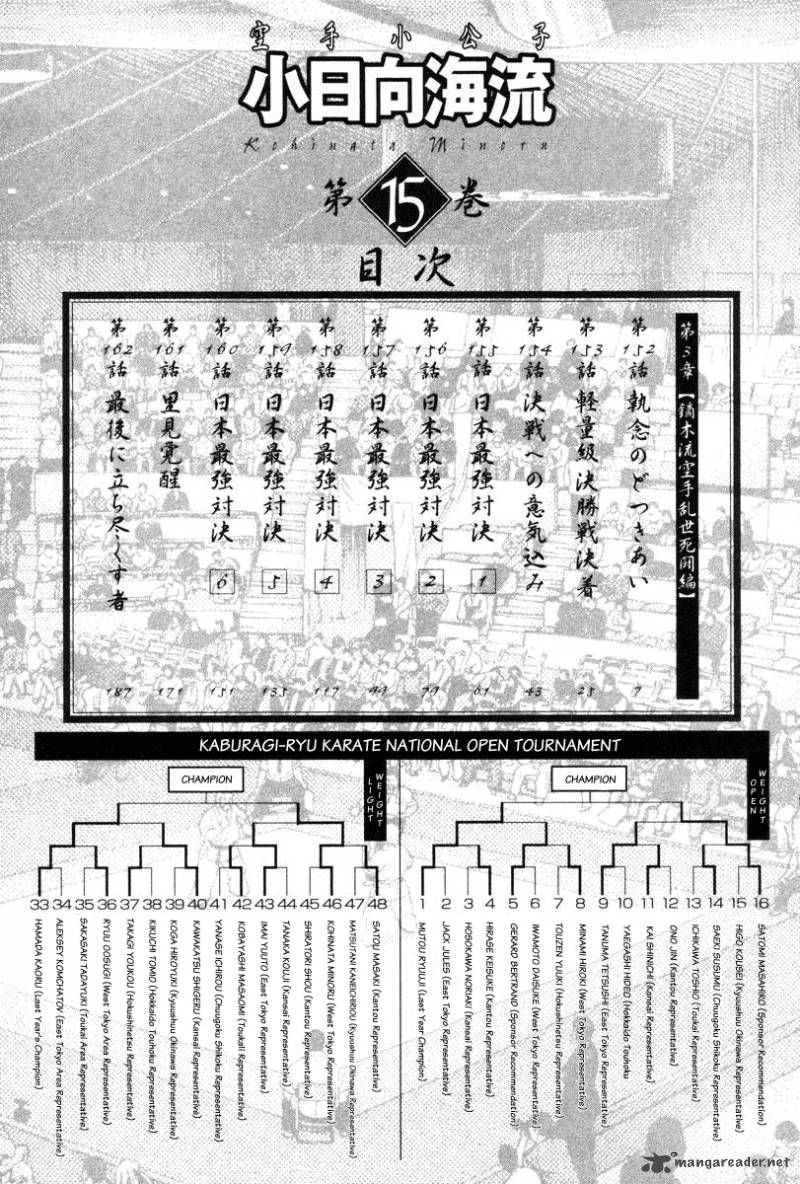 空手小公子
小日向海流
Kohinata Minoru
第15巻
目次
第3章【鏑木流空手乱世死闘編】
第152話 執念のどつきあい 7
第153話 軽量級決勝戦決着 25
第154話 決戦への意気込み 43
第155話 日本最強対決 1 61
第156話 日本最強対決 2 79
第157話 日本最強対決 3 99
第158話 日本最強対決 4 117
第159話 日本最強対決 5 135
第160話 日本最強対決 6 151
第161話 里見覚醒 171
第162話 最後に立ち尽くす者 187
KABURAGI-RYU KARATE NATIONAL OPEN TOURNAMENT
CHAMPION
LIGHT WEIGHT
33 HAMADA KAORU (Last Year's Champion)
34 ALEKSEY KOMCHATOV (East Tokyo Area Representative)
35 SAKASAKI TADAYUKI (Toukai Area Representative)
36 RYUU OOSUGI (West Tokyo Area Representative)
37 TAKAGI YOUKOU (Hokushinetsu Representative)
38 KIKUCHI TOMIO (Hokkaido Touhoku Representative)
39 KOGA HIROYUKI (Kyuushuu Okinawa Representative)
40 KAWAKATSU SHIGERU (Kansai Representative)
41 YANASE ICHIROU (Chuugoku Shikoku Representative)
42 KOBAYASHI MASAOMI (Toukai Representative)
43 IMAI YUUTO (East Tokyo Representative)
44 TANAKA KOUJI (Kansai Representative)
45 SHIRATORI SHOU (Kantou Representative)
46 KOHINATA MINORU (West Tokyo Representative)
47 MATSUTANI KANEICHIROU (Kyuushuu Okinawa Representative)
48 SATOU MASAKI (Kantou Representative)
CHAMPION
OPEN WEIGHT
1 MUTOU RYUUJI (Last Year Champion)
2 JACK JULES (East Tokyo Representative)
3 HOSOKAWA NORIAKI (Kansai Representative)
4 HIRASE KEISUKE (Kantou Representative)
5 GERARD BERTRAND (Sponsor Recommendation)
6 IWAMOTO DAISUKE (West Tokyo Representative)
7 TOUZEN YUUKI (Hokushinetsu Representative)
8 MINAMI HIROKI (West Tokyo Representative)
9 TANUMA TETSUSHI (East Tokyo Representative)
10 YAEGASHI HIDEO (Hokkaido Touhoku
11 KAI SHINICHI (Kansai Representative)
12 ONO JIN (Kantou Representative)
13 ICHIKAWA TOSHIO (Toukai Representative)
14 SAEKI SUSUMU (Chuugoku Shikoku Representative)
15 HIGO KOUSEI (Kyuushuu Okinawa Representative)
16 SATOMI MASAHIKO (Sponsor Recommendation)
mangareader.net